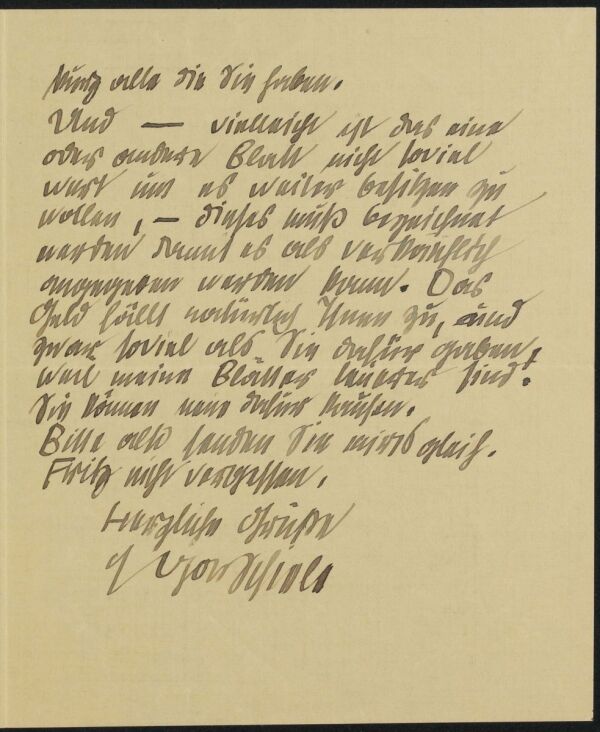 kurz alle die Sie haben.
Und — vielleicht ist das eine
oder andere Blatt nicht soviel
wert um es weiter besitzen zu
wollen, — dieses muß bezeichnet
werden damit es als verkäuflich
angegeben werden kann. Das
Geld fällt natürlich Ihnen zu, und
zwar soviel als Sie dafür gaben,
weil meine Blätter teuerer sind!
Sie können neue dafür kaufen.
Bitte alß senden Sie mirs gleich.
Fritz nicht vergessen.
Herzliche Grüße
Egon Schiele